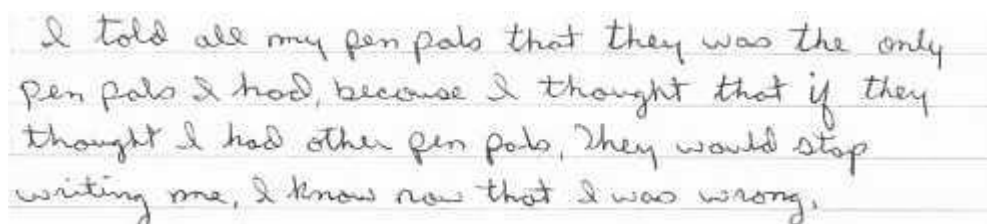 I told all my pen pals that they was the only
pen pals I had, because I thought that if they
thought I had other pen pals, They would stop
writing me, I know now that I was wrong,